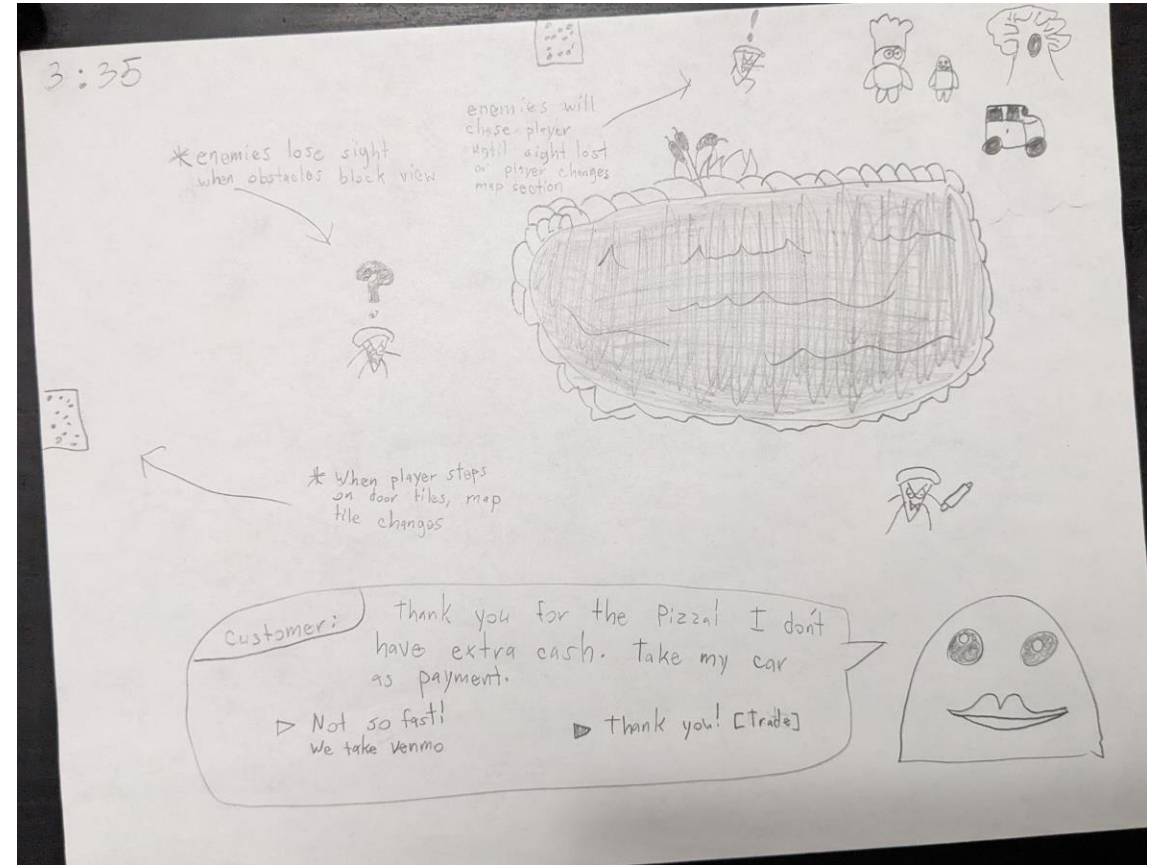 3:35
* enemies lose sight
when obstacles block view
enemies will
chase player
until sight lost
or player changes
map section
!
* When player steps
on door tiles, map
tile changes
Customer:
Thank you for the Pizza! I don't
have extra cash. Take my car
as payment.
▷ Not so fast!
We take venmo
▶ Thank you! [Trade]